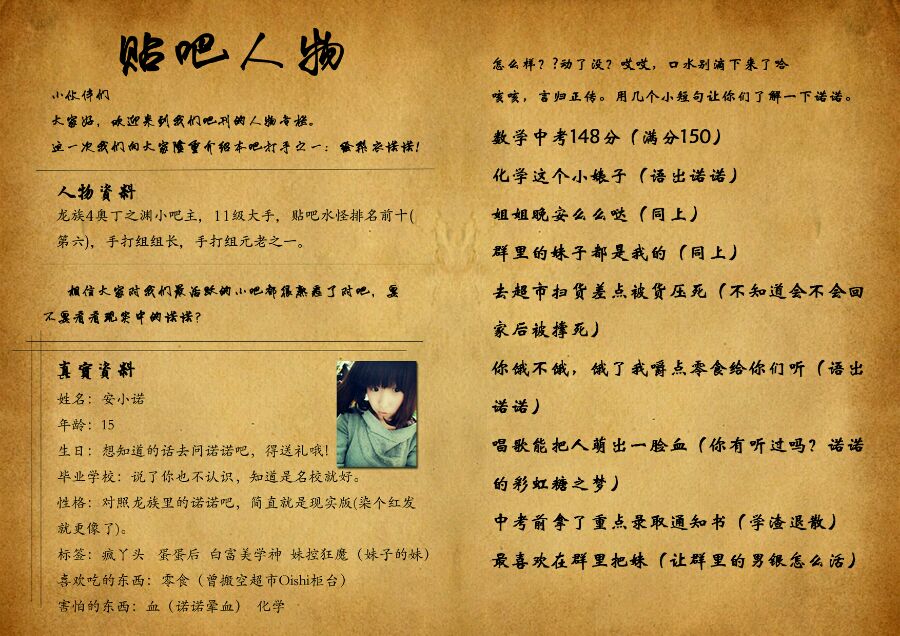 贴吧人物
小伙伴们
大家好，欢迎来到我们吧刊的人物专栏。
这一次我们向大家隆重介绍本吧打手之一：绘梨衣诺诺！
人物资料
龙族4奥丁之渊小吧主，11级大手，贴吧水怪排名前十(
第六)，手打组组长，手打组元老之一。
相信大家对我们最活跃的小吧都很熟悉了对吧，要
不要看看现实中的诺诺？
真實資料
姓名：安小诺
年龄：15
生日：想知道的话去问诺诺吧，得送礼哦！
毕业学校：说了你也不认识，知道是名校就好。
性格：对照龙族里的诺诺吧，简直就是现实版(染个红发
就更像了)。
标签：疯丫头 蛋蛋后 白富美学神 妹控狂魔（妹子的妹）
喜欢吃的东西：零食（曾搬空超市Oishi柜台）
害怕的东西：血（诺诺晕血） 化学
怎么样？?动了没？哎哎，口水别滴下来了哈
咳咳，言归正传。用几个小短句让你们了解一下诺诺。
数学中考148分（满分150）
化学这个小婊子（语出诺诺）
姐姐晚安么么哒（同上）
群里的妹子都是我的（同上）
去超市扫货差点被货压死（不知道会不会回
家后被撑死）
你饿不饿，饿了我嚼点零食给你们听（语出
诺诺）
唱歌能把人萌出一脸血（你有听过吗？诺诺
的彩虹糖之梦）
中考前拿了重点录取通知书（学渣退散）
最喜欢在群里把妹（让群里的男银怎么活）